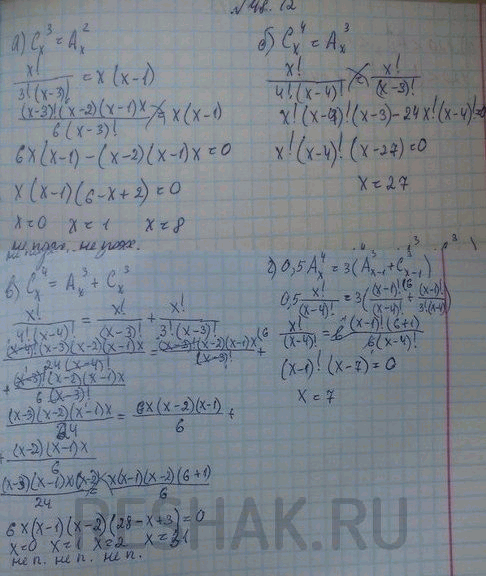 №48.12
а) C_x^3 = A_x^2
x!/(3!(x-3)!) = x(x-1)
(x-3)!(x-2)(x-1)x/(6(x-3)!) = x(x-1)
6x(x-1)-(x-2)(x-1)x=0
x(x-1)(6-x+2)=0
x=0 x=1 x=8
не подх. не подх.
б) C_x^4 = A_x^3
x!/(4!(x-4)!) = x!/(x-3)!
x!(x-3)!-24x!(x-4)!=0
x!(x-4)!(x-27)=0
x=27
в) C_x^4 = A_x^3 + C_x^3
x!/(4!(x-4)!) = x!/(x-3)! + x!/(3!(x-3)!)
(x-4)!(x-3)(x-2)(x-1)x/(24(x-4)!) = (x-3)!(x-2)(x-1)x/(x-3)! +
+ (x-3)!(x-2)(x-1)x/(6(x-3)!)
(x-3)(x-2)(x-1)x/24 = 6x(x-2)(x-1)/6 +
+ (x-2)(x-1)x/6
(x-3)(x-1)x(x-2)/24 = x(x-1)(x-2)(6+1)/6
6x(x-1)(x-2)(28-x+3)=0
x=0 x=1 x=2 x=31
не п. не п. не п.
г) 0,5A_x^4 = 3(A_{x-1}^3 + C_{x-1}^3)
0,5 x!/(x-4)! = 3((x-1)!/(x-4)! + (x-1)!/(3!(x-4)!))
x!/(x-4)! = 6 (x-1)!(6+1)/(6(x-4)!)
(x-1)!(x-7)=0
x=7
RESHAK.RU